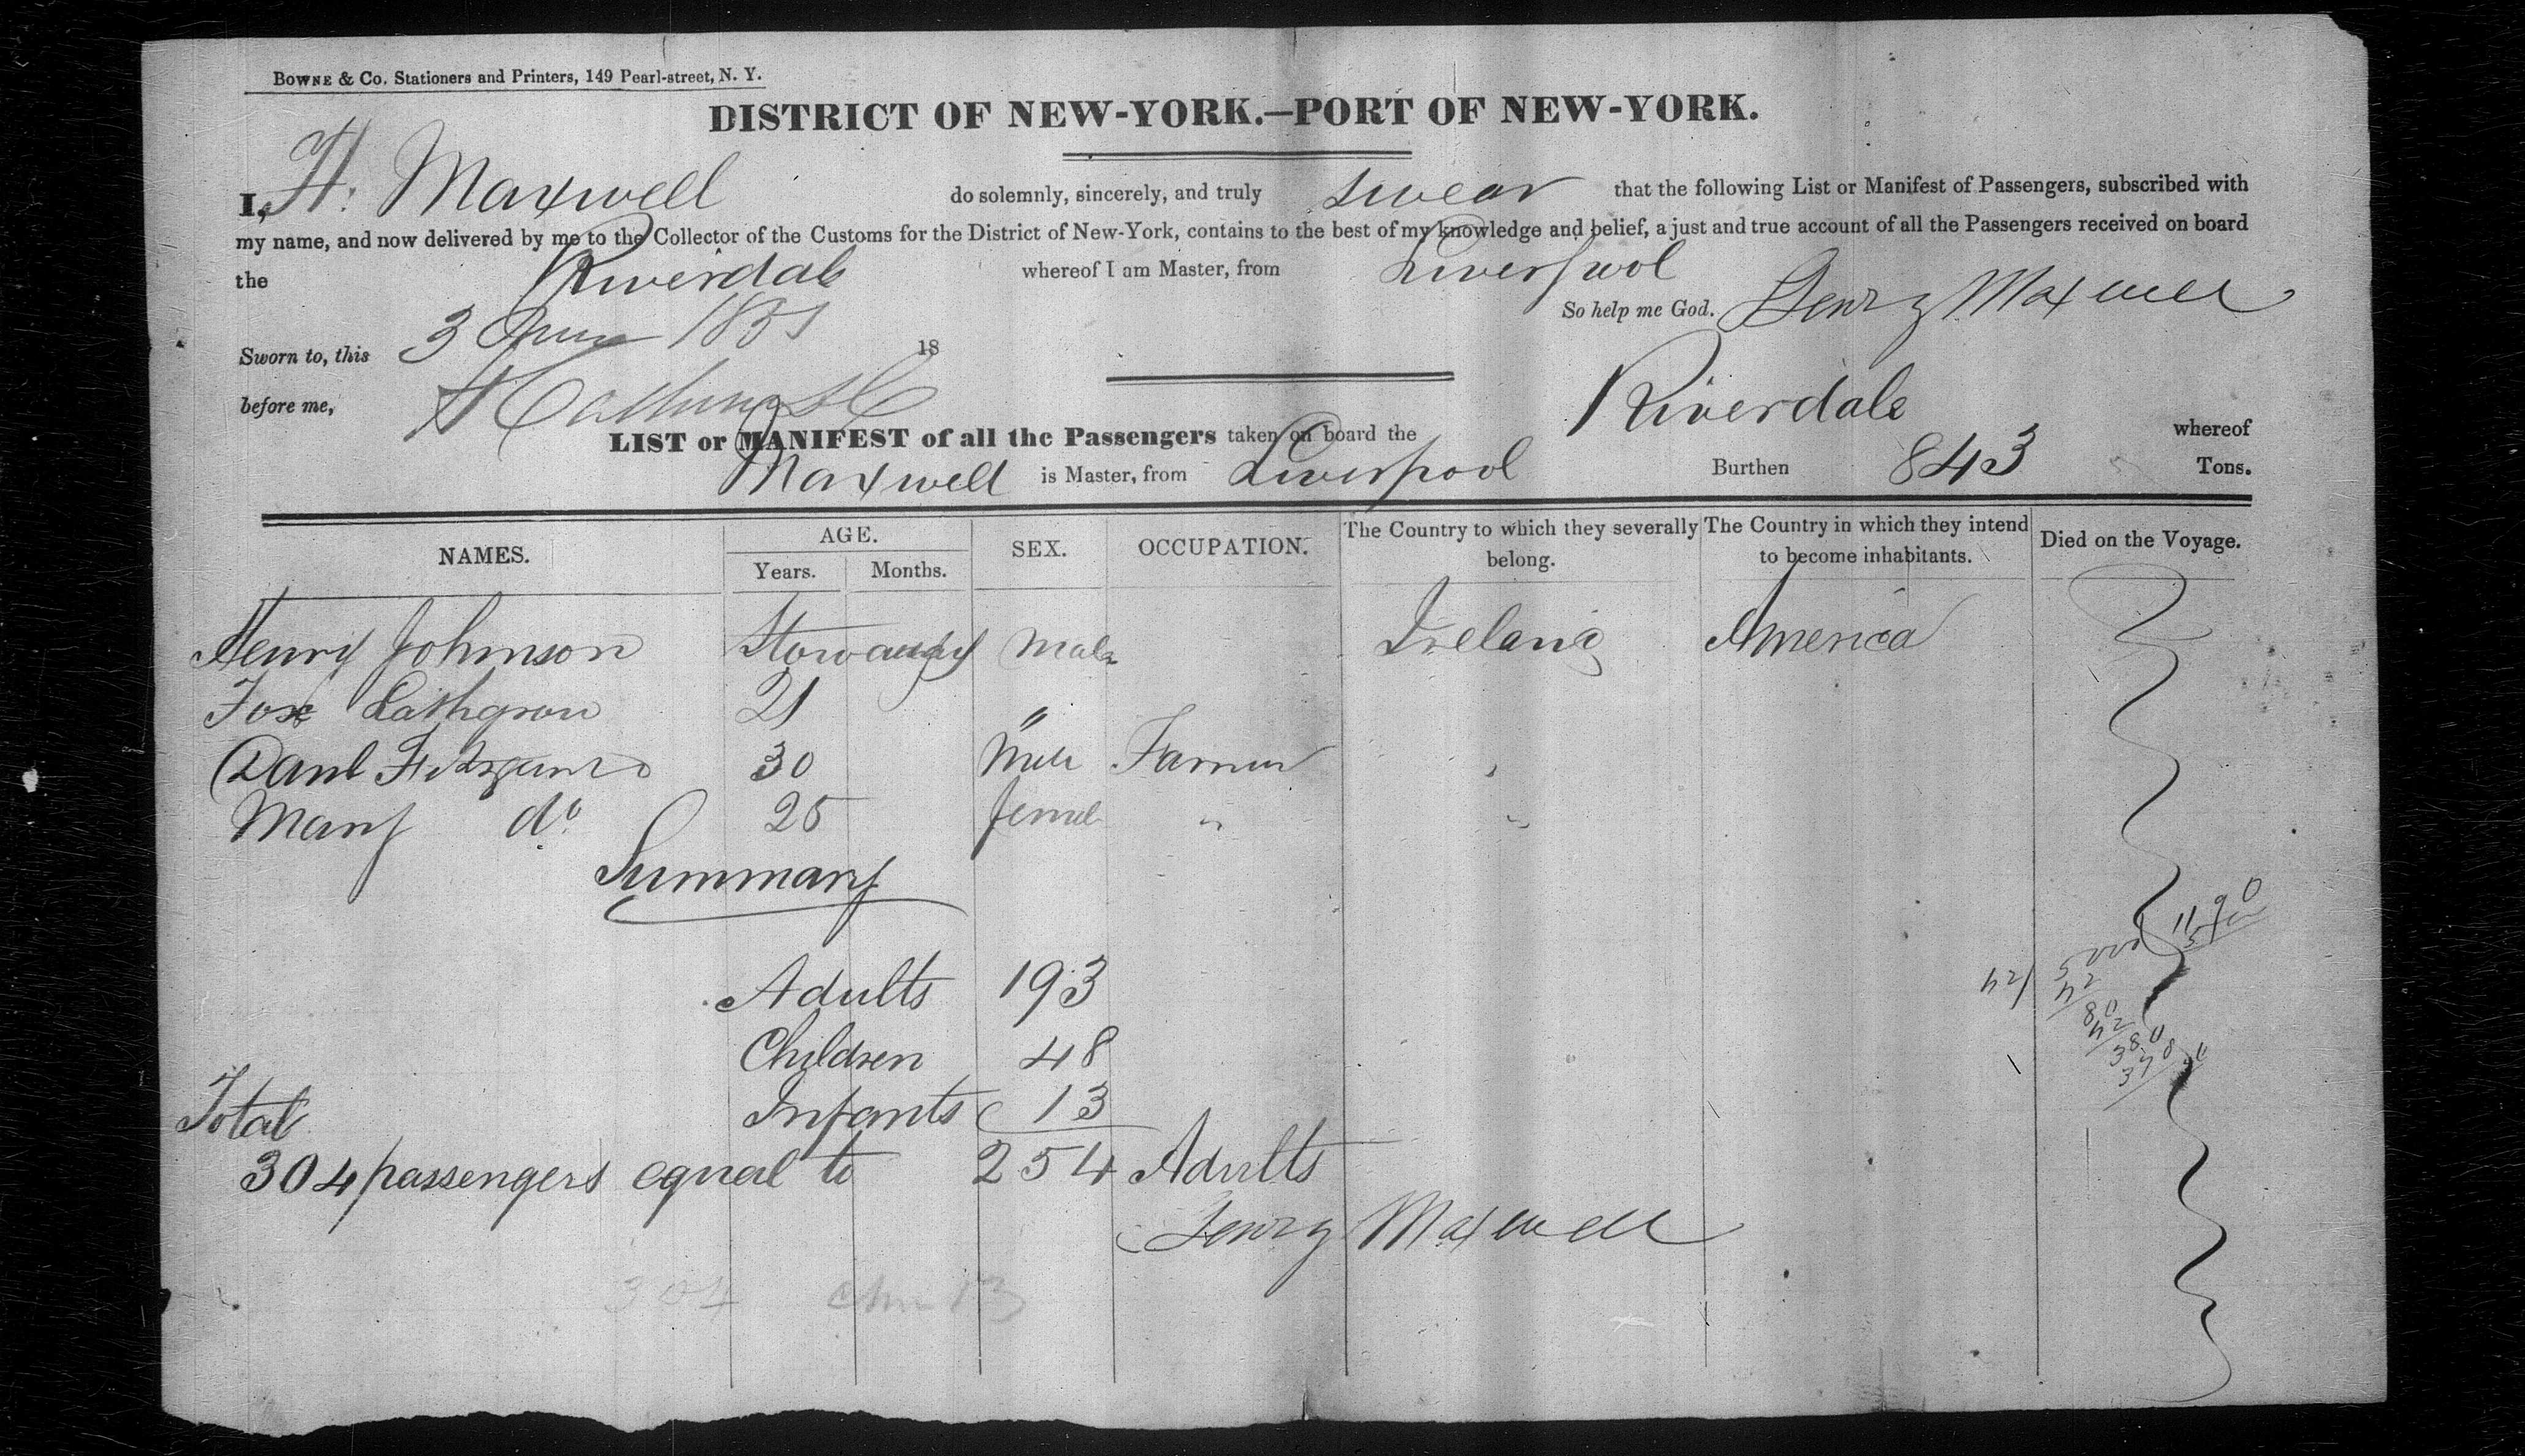 BOWNE & CO. Stationers and Printers, 149 Pearl-street, N. Y.
DISTRICT OF NEW-YORK.—PORT OF NEW-YORK.
I, H. Maxwell do solemnly, sincerely, and truly swear that the following List or Manifest of Passengers, subscribed with
my name, and now delivered by me to the Collector of the Customs for the District of New-York, contains to the best of my knowledge and belief, a just and true account of all the Passengers received on board
the Riverdale whereof I am Master, from Liverpool
So help me God. Henry Maxwell
Sworn to, this 3 June 1851 18
before me,
LIST or MANIFEST of all the Passengers taken on board the Riverdale whereof
Maxwell is Master, from Liverpool Burthen 843 Tons.
NAMES. AGE. Years. Months. SEX. OCCUPATION. The Country to which they severally belong. The Country in which they intend to become inhabitants. Died on the Voyage.
Henry Johnson Stowaway Male Ireland America
21 "
Danl 30 Male Farmer
Mary do 25 femal "
Summary
Adults 193
Children 48
Infants 13
Total
304 passengers equal to 254 Adults
Henry Maxwell
304